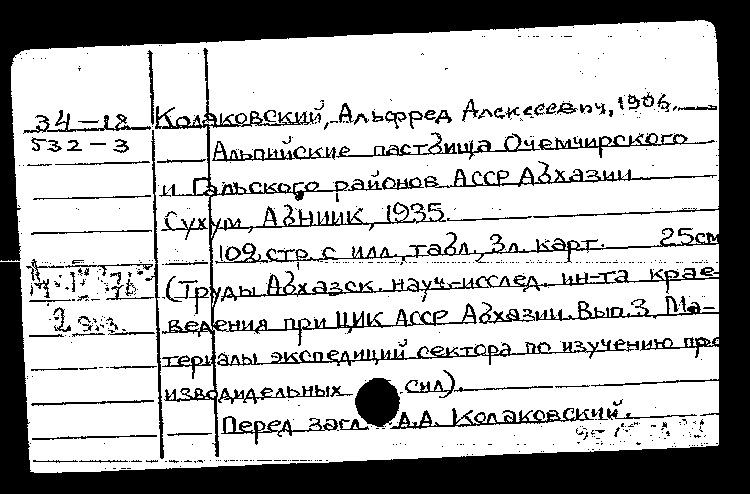 34-18 Колаковский, Альфред Алексеевич, 1906.
532-3 Альпийские пастбища Очемчирского
и Гальского районов АССР Абхазии
Сухум, АбНИИК, 1935.
102 стр. с илл., табл., 3л. карт. 25см
(Труды Абхазск. науч.-исслед. ин-та крае-
2 экз. ведения при ЦИК АССР Абхазии. Вып.3. Ма-
териалы экспедиций сектора по изучению про
изводидельных сил).
Перед загл. А.А. Колаковский.